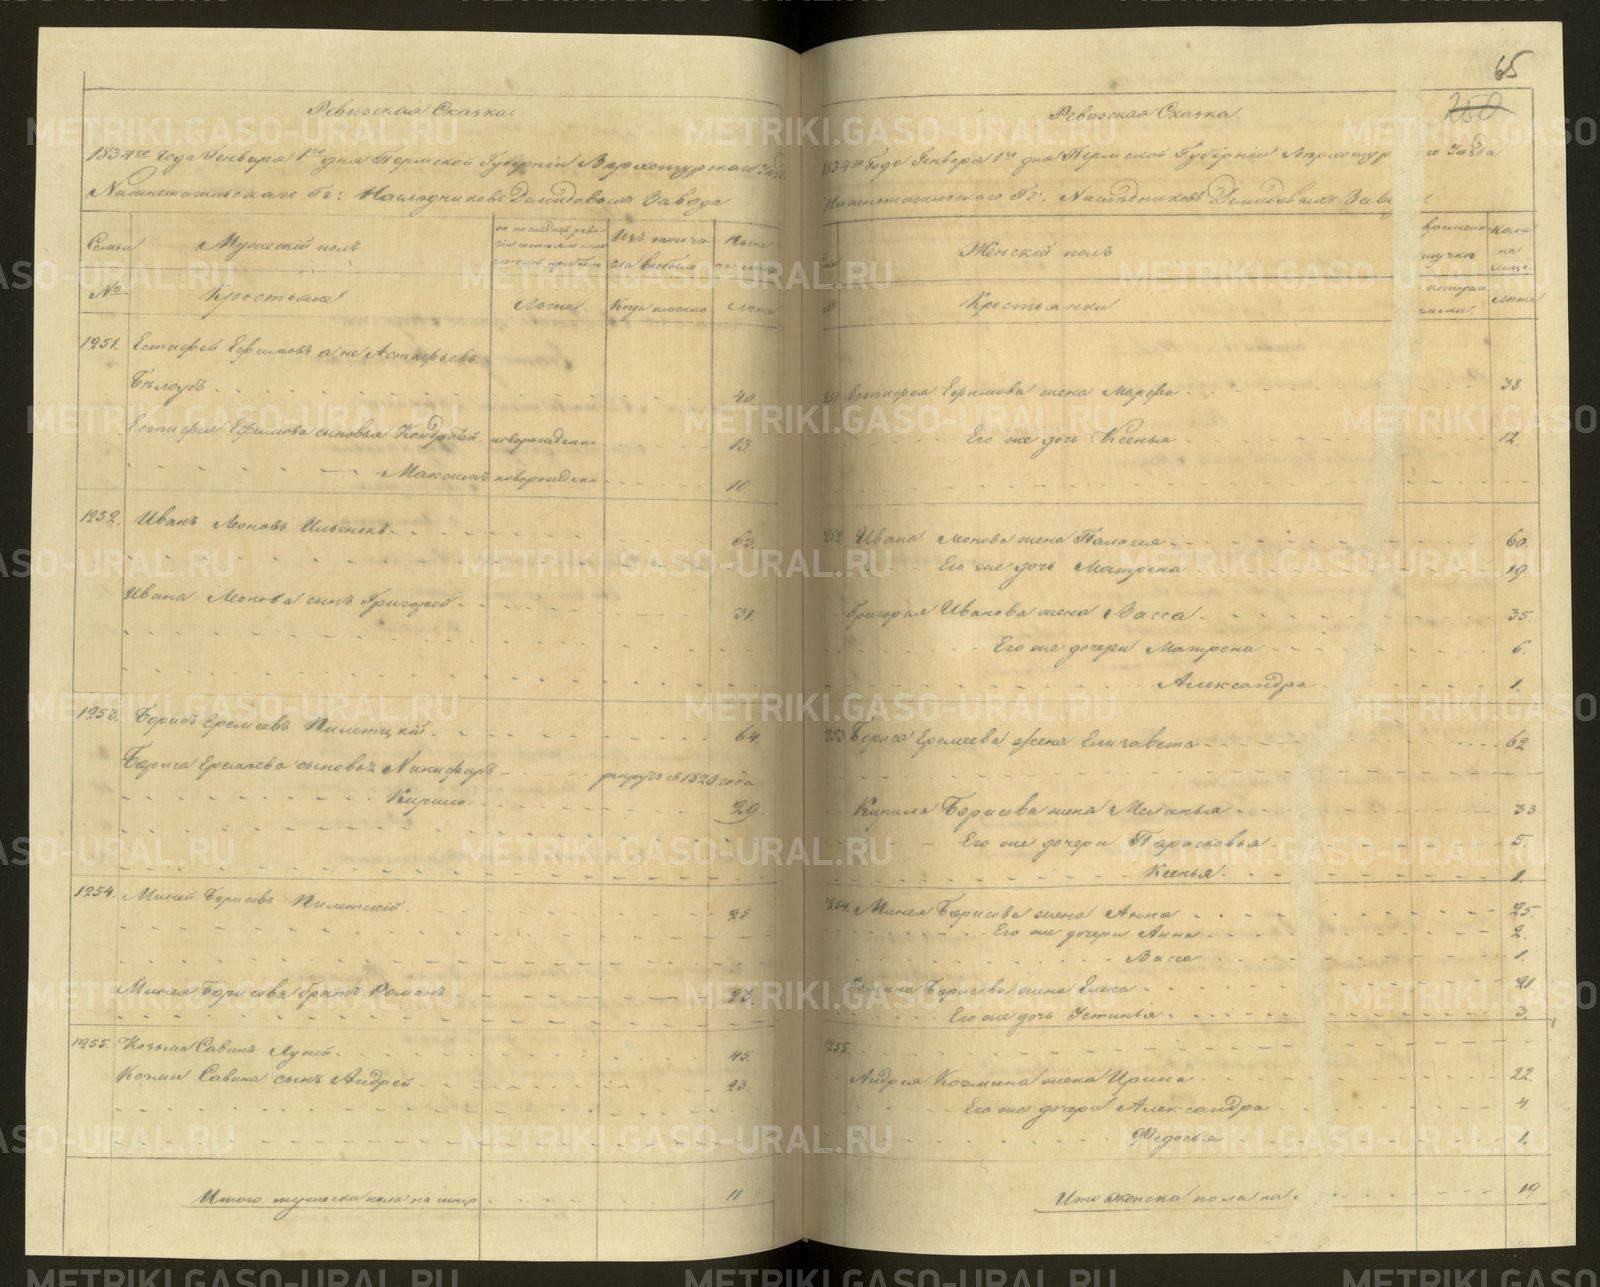 Ревизская Сказка.
1834го года Генваря 1го дня Пермской Губернии Верхотурского
Нижнетагильского Гг: Наследниковъ Демидовыхъ Завода
Семьи
Мужескій полъ
по последней реви-
зіи состояло и по-
Изъ того чи-
сла выбыло
Ныне
на лицо
№
Крестьяне
Лета
Когда именно
Лета
1251. Естифей Ефимовъ а не Астафьевъ
Белоубъ 40.
Естифея Ефимова сыновья Кондратей новорожденъ 13.
Максимъ новорожденъ 10.
1252. Иванъ Леоновъ 63.
Ивана Леонова сынъ Григорей 31.
1253. Борисъ Еремеевъ Пилетцкій 64.
Бориса Еремеева сыновья Никифоръ рекрутъ съ 1820 года
Кирило 29.
1254. Миней Борисовъ Пилетскій 25
Минея Борисова братъ Романъ 23.
1255. Козьма Савинъ 45.
Козмы Савина сынъ Андрей 23.
Итого мужеска пола на лицо 11
65
250
Ревизская Сказка.
1834го Года Генваря 1го дня Пермской Губерніи Верхотур го Уезда
Нижнетагильского Гг: Наследниковъ Демидовыхъ Заво
Женскій полъ
времен
лучке
Ныне
на
лицо.
Крестьянки
Лета
251 Естифея Ефимова жена Марфа 38.
Его же дочь Ксенья 12.
252. Ивана Леонова жена Палагея 60.
Его же дочь Матрена 19.
Григорья Иванова жена Васса 35.
Его же дочери Матрена 6.
Александра 1.
253 Бориса Еремеева жена Елизавета 62
Кирила Борисова жена Меланья 33
Его же дочери Парасковья 5.
Ксенья 1.
254. Минея Борисова жена Анна 25.
Его же дочери Анна 2.
Васса 1.
Романа Борисова жена Елена 21
Его же дочь Устинья 3.
1255.
Андрея Козмина жена Ирина 22.
Его же дочери Александра 4
Федосья 1.
Итого женска пола на 19
METRIKI.GASO-URAL.RU